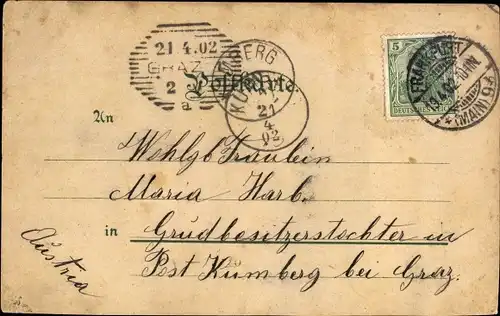 21 4.02
GRAZ
2
a
KUMBERG
21
4
02
5
FRANKFURT
(MAIN)
Postkarte.
An
Wohlgb Fraulein
Maria Harb.
in Grudbesitzerstochter in
Post Kumberg bei Graz.
Austria